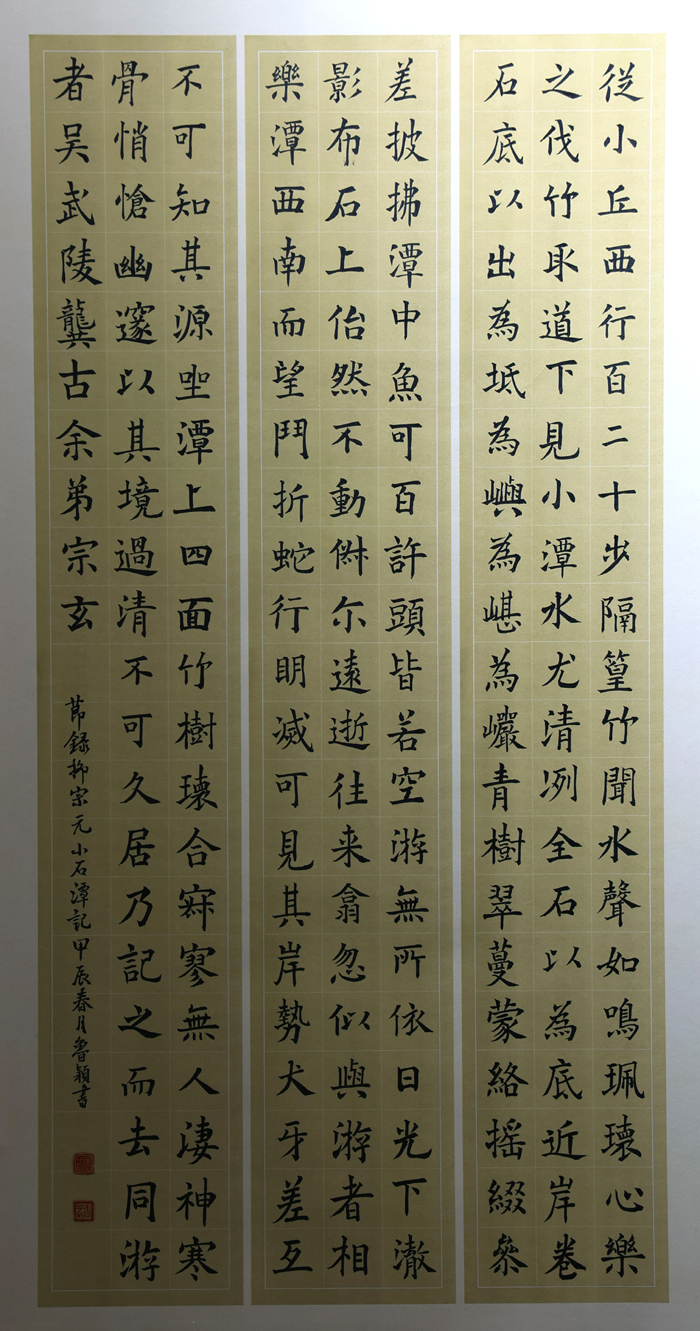 從小丘西行百二十步隔篁竹聞水聲如鳴珮瓌心樂
之伐竹取道下見小潭水尤清冽全石以為底近岸卷
石底以出為坻為嶼為嵁為巖青樹翠蔓蒙絡摇綴叅
差披拂潭中魚可百許頭皆若空游無所依日光下澈
影布石上佁然不動俶尔遠逝往来翕忽似與游者相
樂潭西南而望鬥折蛇行明滅可見其岸勢犬牙差互
不可知其源坐潭上四面竹樹瓌合寂寥無人淒神寒
骨悄愴幽邃以其境過清不可久居乃記之而去同游
者吴武陵龔古余弟宗玄
節錄柳宗元小石潭記甲辰春月魯穎書